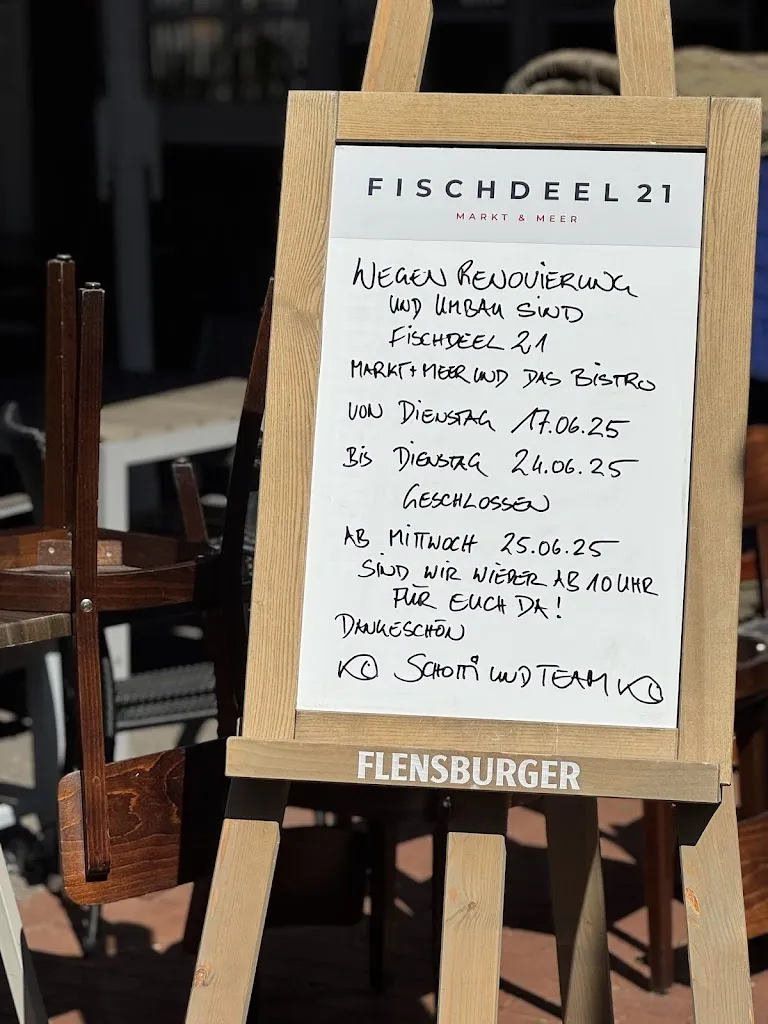 FISCHDEEL 21
MARKT & MEER
WEGEN RENOVIERUNG
UND UMBAU SIND
FISCHDEEL 21
MARKT+MEER UND DAS BISTRO
VON DIENSTAG 17.06.25
BIS DIENSTAG 24.06.25
GESCHLOSSEN
AB MITTWOCH 25.06.25
SIND WIR WIEDER AB 10 UHR
FÜR EUCH DA!
DANKESCHÖN
SCHOTTI UND TEAM
FLENSBURGER